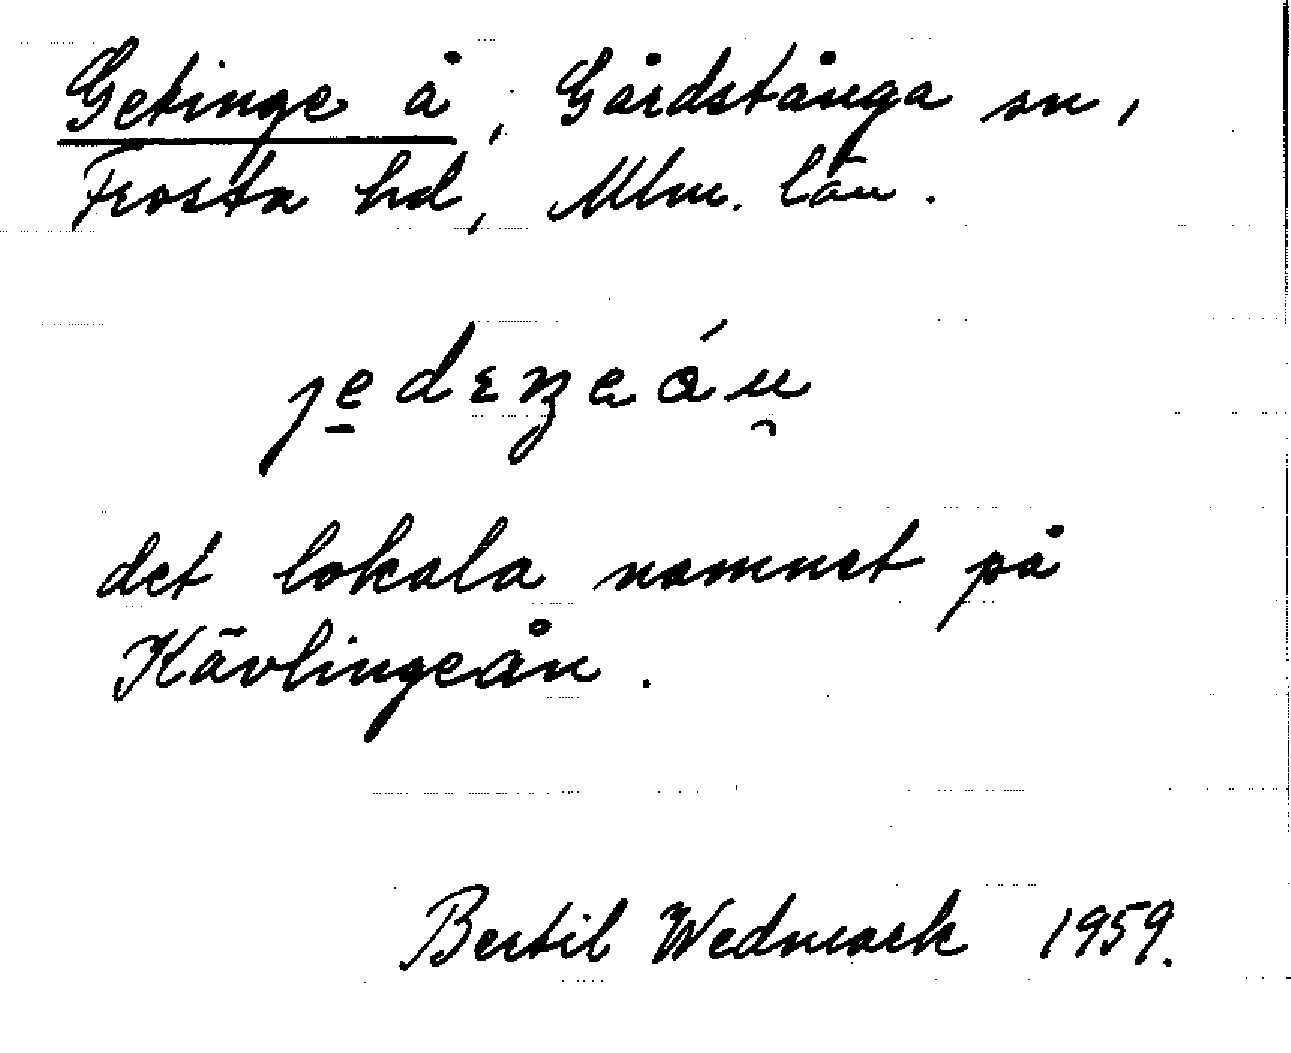 Getinge å, Gårdstånga sn,
Frosta hd, Mlm. län.
det lokala namnet på
Kävlingeån.
Bertil Wedmark 1959.